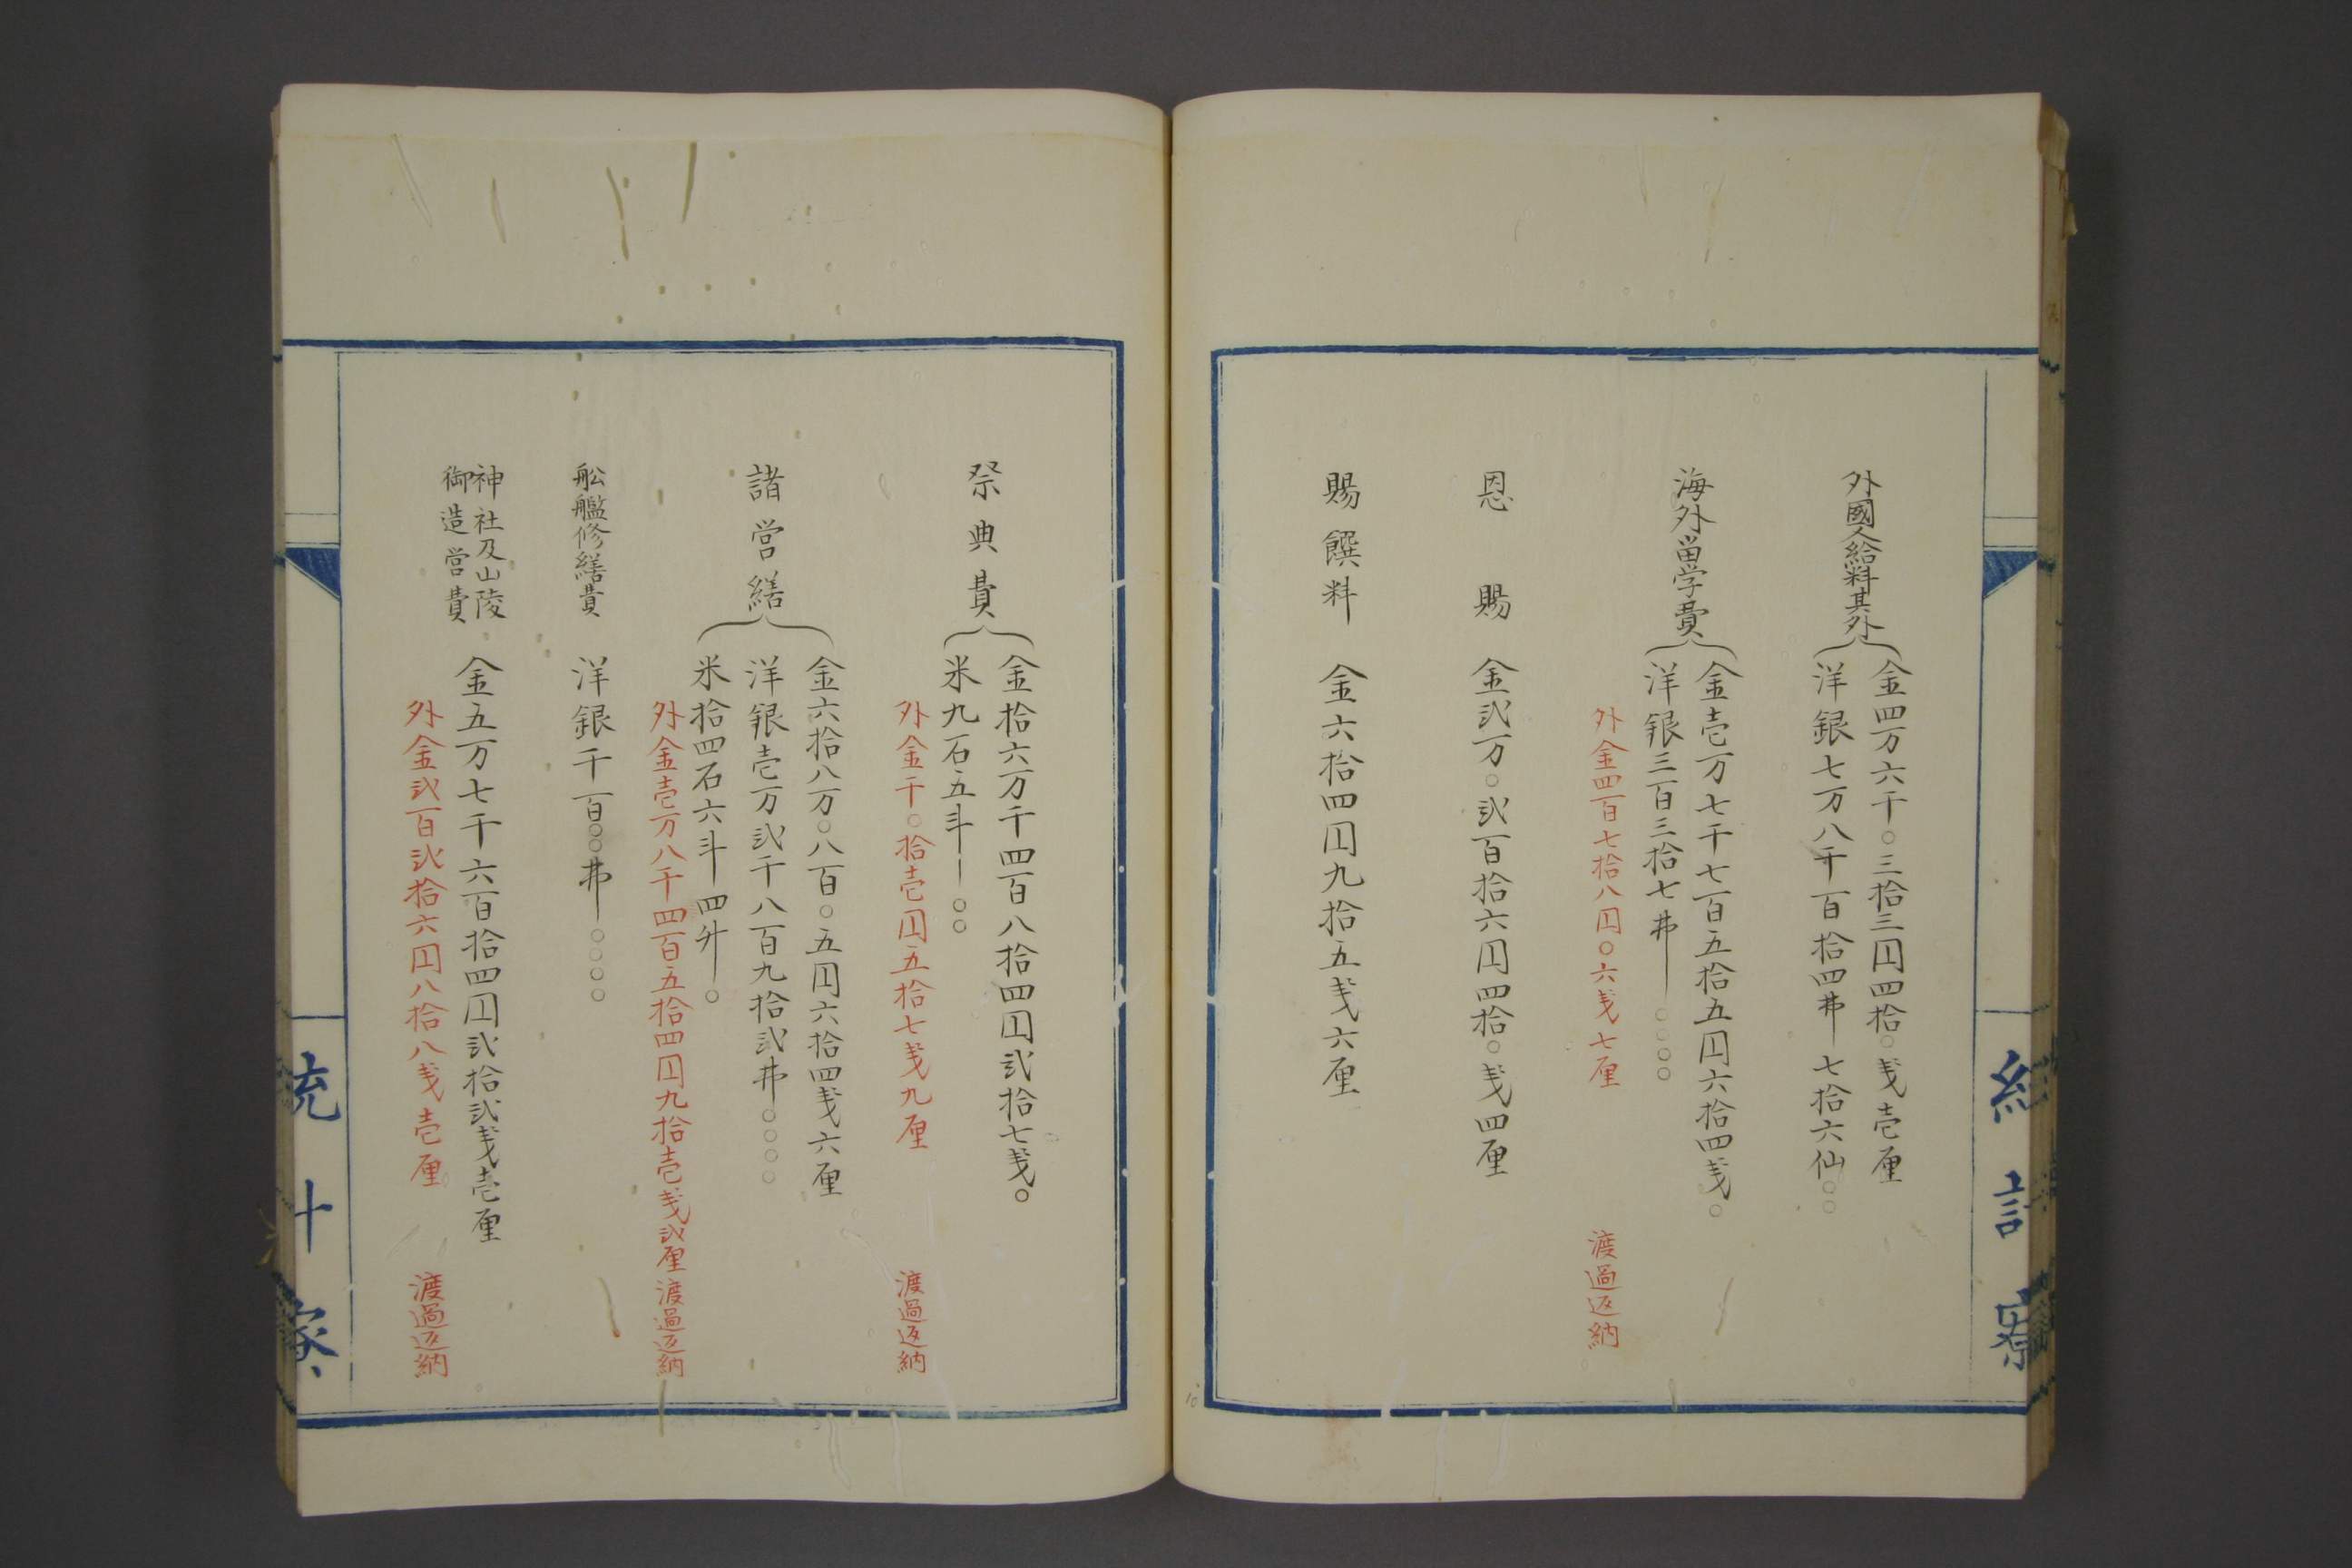 外國人給料其外
金四万六千〇三拾三円四拾〇戋壱厘
洋銀七万八千百拾四弗七拾六仙〇〇
海外畄学費
金壱万七千七百五拾五円六拾四戋〇
洋銀三百三拾七弗〇〇〇〇
外金四百七拾八円〇六戋七厘 渡過返納
恩賜 金弐万〇弐百拾六円四拾〇戋四厘
賜饌料 金六拾四円九拾五戋六厘
祭典費
金拾六万千四百八拾四円弐拾七戋〇
米九石五斗〇〇
外金千〇拾壱円五拾七戋九厘 渡過返納
諸営繕
金六拾八万〇八百〇五円六拾四戋六厘
洋銀壱万弐千八百九拾弐弗〇〇〇〇
米拾四石六斗四升〇
外金壱万八千四百五拾四円九拾壱戋弐厘 渡過返納
舩艦修繕費 洋銀千百〇〇弗〇〇〇〇
神社及山陵
御造営費
金五万七千六百拾四円弐拾弐戋壱厘
外金弐百弐拾六円八拾八戋壱厘 渡過返納